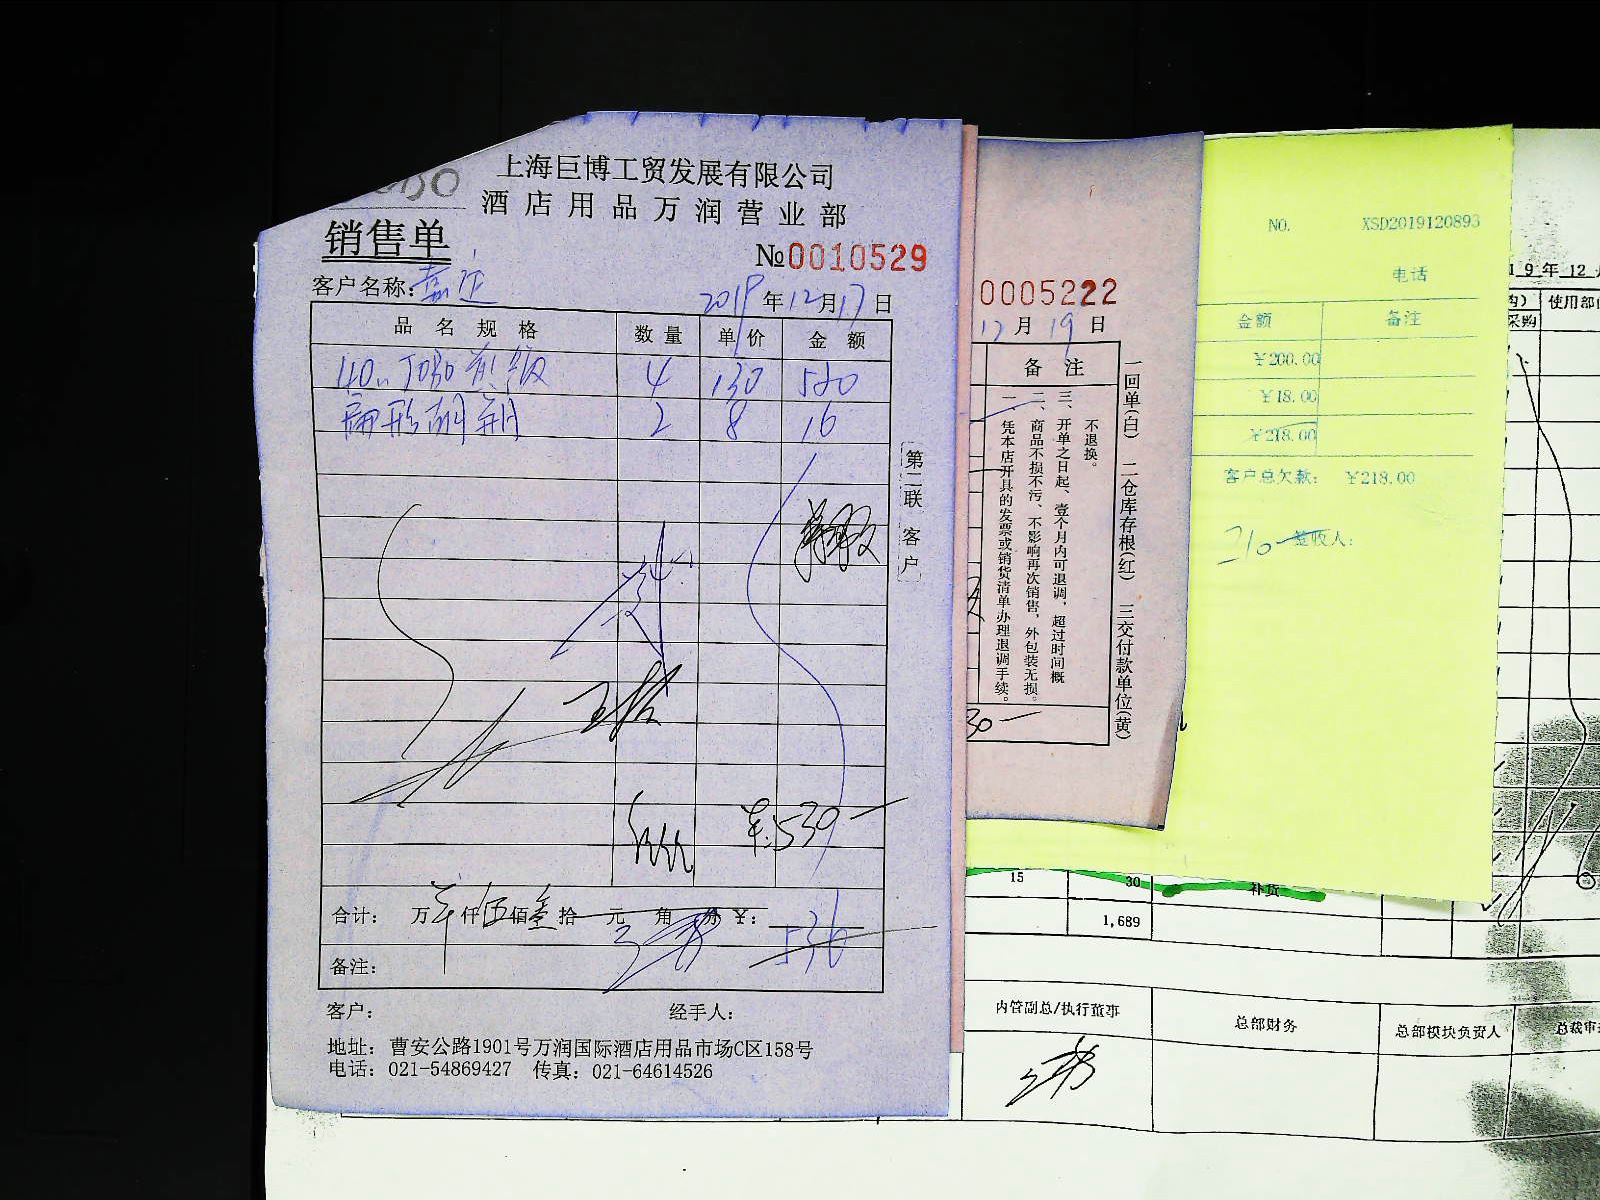 上海巨博工贸发展有限公司
酒店用品万润营业部
销售单
№0010529
客户名称:嘉定
2019年12月17日
品名规格 数量 单价 金额
4 130 520
2 8 16
第二联 客户
羊:530-
合计: 万 仟伍佰叁拾 元 角 分 ¥: 536
备注:
客户: 经手人:
地址: 曹安公路1901号万润国际酒店用品市场C区158号
电话: 021-54869427 传真: 021-64614526
0005222
12月19日
备注
一、凭本店开具的发票或销货清单办理退调手续。
二、商品不损不污、不影响再次销售,外包装无损。
三、开单之日起、壹个月内可退调,超过时间概
不退换。
一回单(白) 二仓库存根(红) 三交付款单位(黄)
30-
NO. XSD2019120893
电话
金额 备注
¥200.00
¥18.00
¥218.00
客户总欠款: ¥218.00
210- 签收人:
19年12月
购) 使用部
采购
15 30 补货
1,689
内管副总/执行董事 总部财务 总部模块负责人 总裁审